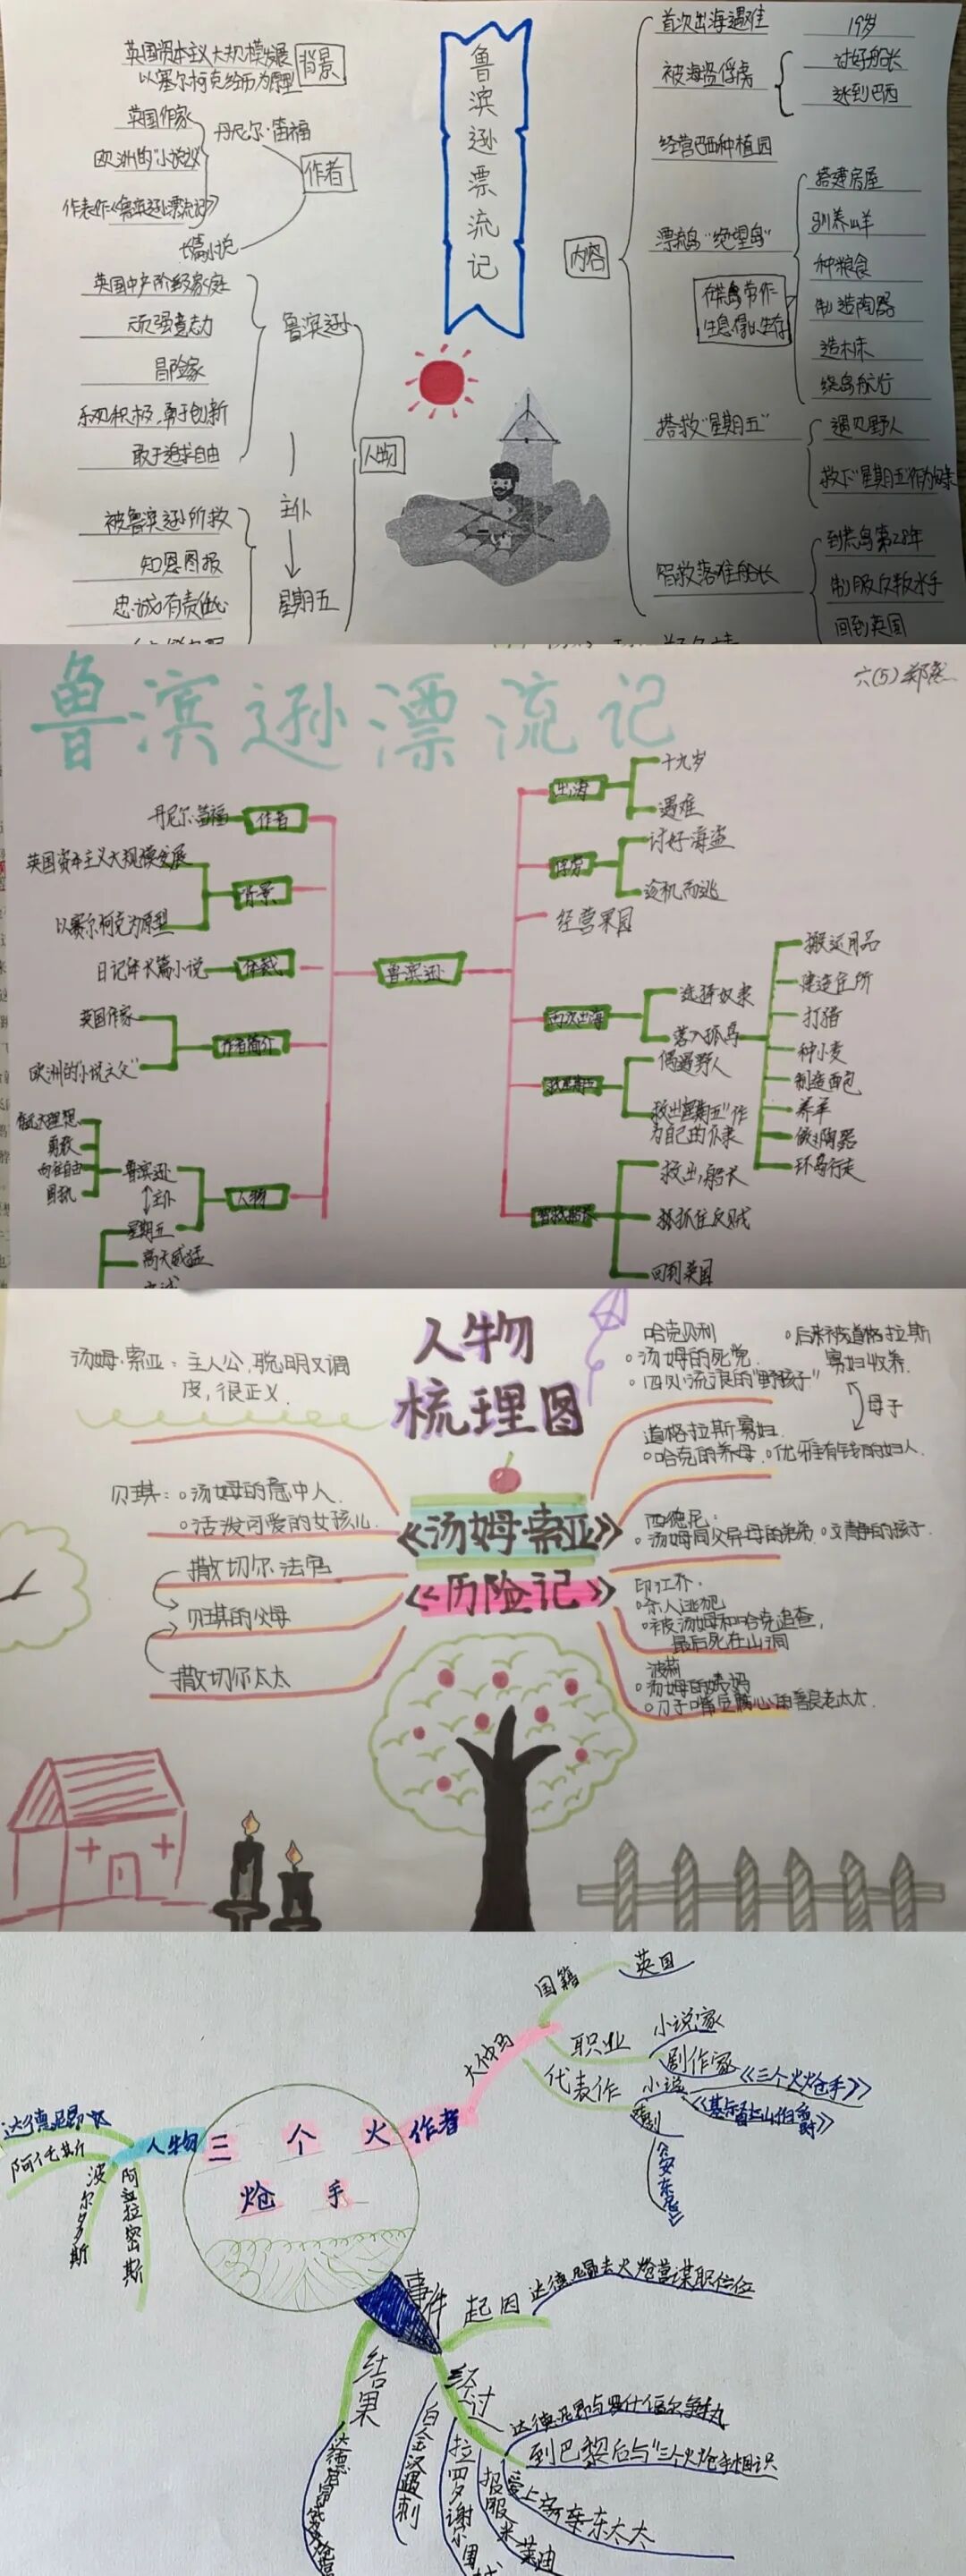 鲁滨逊票流记
英国资本主义大规模发展
以塞尔柯克经历为原型
背景
英国作家
丹尼尔·笛福
欧洲的"小说父
作者
代表作《鲁滨逊漂流记》
长篇小说
英国中产阶级家庭
顽强意志力
鲁滨逊
冒险家
乐观积极,勇于创新
敢于追求自由
人物
主仆
被鲁滨逊所救
知恩图报
忠诚有责任心
星期五
内容
首次出海遇难
19岁
被海盗俘虏
讨好船长
逃到巴西
经营巴西种植园
漂流岛"绝望岛"
在荒岛劳作
生息,得以生存
搭建房屋
驯养山羊
种粮食
制造陶器
造木床
绕岛航行
搭救"星期五"
遇见野人
救下"星期五"作为奴隶
智救落难船长
到荒岛第28年
制服反叛水手
回到英国
鲁滨逊漂流记
丹尼尔·笛福
作者
英国资本主义大规模发展
背景
以赛尔柯克为原型
日记体长篇小说
体裁
英国作家
作者简介
欧洲的"小说之父"
勇敢
向往自由
鲁滨逊
主仆
人物
星期五
高大威猛
鲁滨逊
出海
十九岁
遇难
俘虏
讨好海盗
趁机而逃
经营果园
再次出海
选择奴隶
落入孤岛
搬运用品
建造住所
打猎
种小麦
制造面包
养羊
做陶器
环岛行走
偶遇野人
救出"星期五"作
为自己的仆隶
智救船长
救出船长
抓住反贼
回到英国
人物
梳理图
《汤姆·索亚》
《历险记》
汤姆·索亚:主人公,聪明又调
皮,很正义.
贝琪:。汤姆的意中人.
。活泼可爱的女孩儿.
撒切尔法官
贝琪的父母
撒切尔太太
哈克贝利
。汤姆的死党.
。四处流浪的"野孩子"
。后来被道格拉斯
寡妇收养.
母子
道格拉斯寡妇.
。哈克的养母.。优雅有钱的妇人.
西德尼.
。汤姆同父异母的弟弟.。文静的孩子.
印江乔.
。杀人逃犯
。被汤姆和哈克追查,
最后死在山洞
波莉
。汤姆的姨妈
。刀子嘴豆腐心的善良老太太.
三个火
炝手
作者
大仲马
国籍
英国
职业
小说家
剧作家
代表作
小说
《三个火炝手》
《基督山伯爵》
戏剧
《安东尼》
人物
达德尼昂
阿托斯
波尔多斯
阿拉密斯
事件
起因
达德尼昂去火炝营谋职位
经过
达德尼昂与罗什福尔争执
到巴黎后与"三个火炝手相识
爱上了亲东太太
报服米莱迪
白金汉遇刺
结果